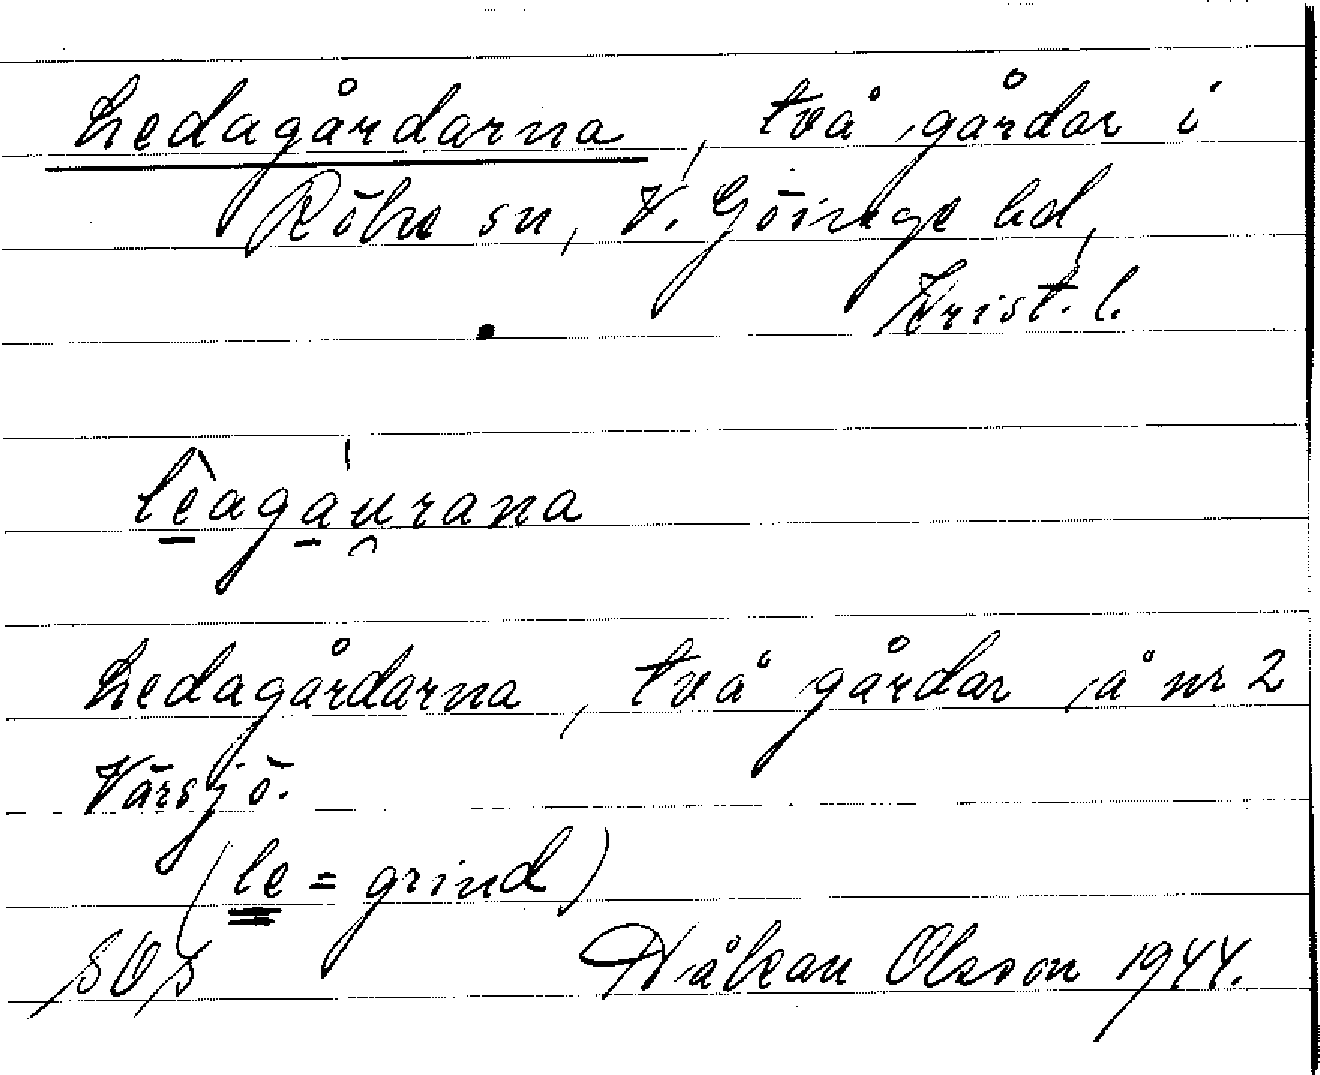 Ledagårdarna, två gårdar i
Röke sn, V. Göinge hd,
Krist. l.
lêagáu̯rana
Ledagårdarna, två gårdar å nr 2
Värsjö.
(le = grind)
SOS Håkan Olsson 1944.